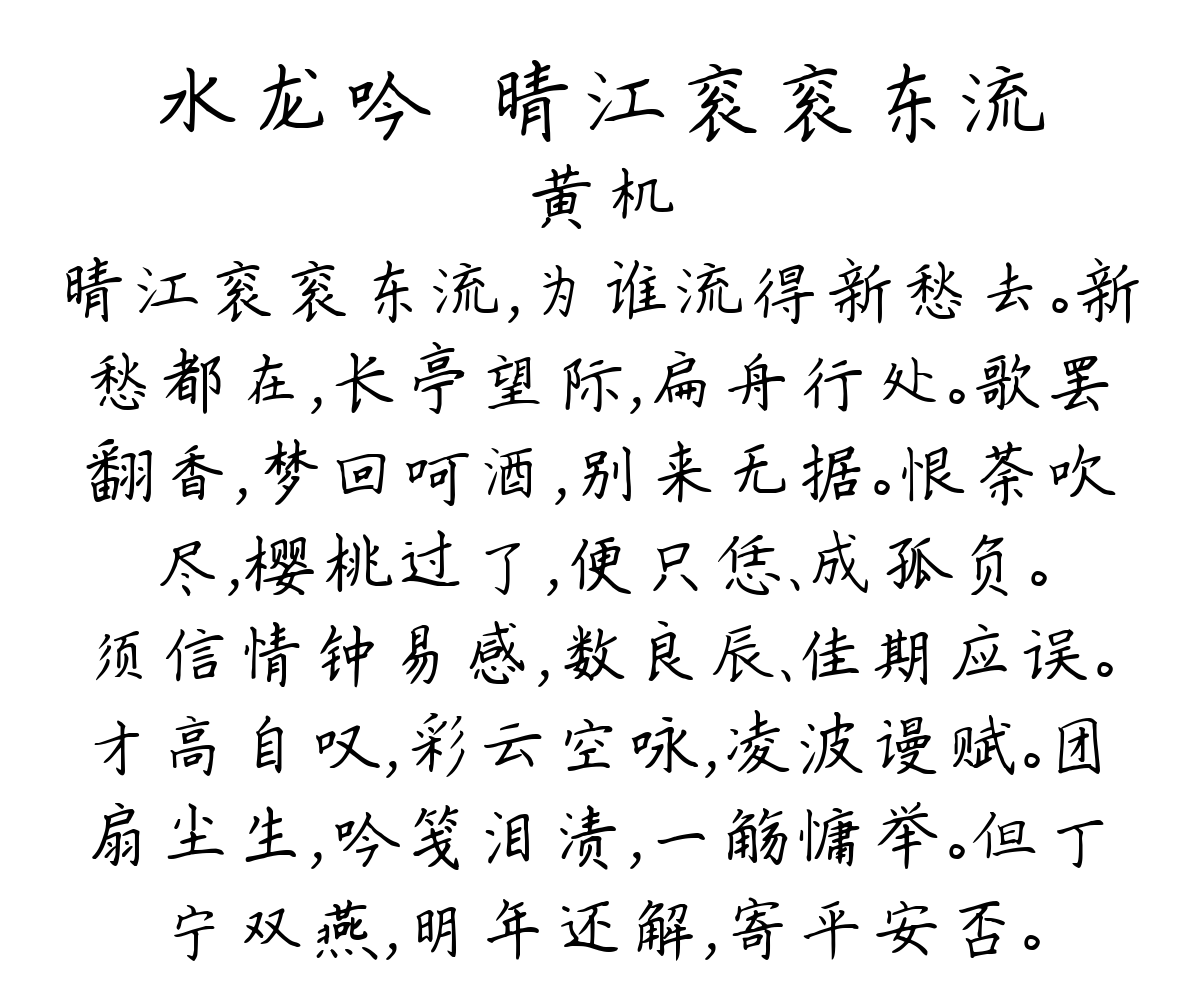 水龙吟 晴江衮衮东流
黄机
晴江衮衮东流,为谁流得新愁去。新
愁都在,长亭望际,扁舟行处。歌罢
翻香,梦回呵酒,别来无据。恨荼吹
尽,樱桃过了,便只恁、成孤负。
须信情钟易感,数良辰、佳期应误。
才高自叹,彩云空咏,凌波谩赋。团
扇尘生,吟笺泪渍,一觞慵举。但丁
宁双燕,明年还解,寄平安否。